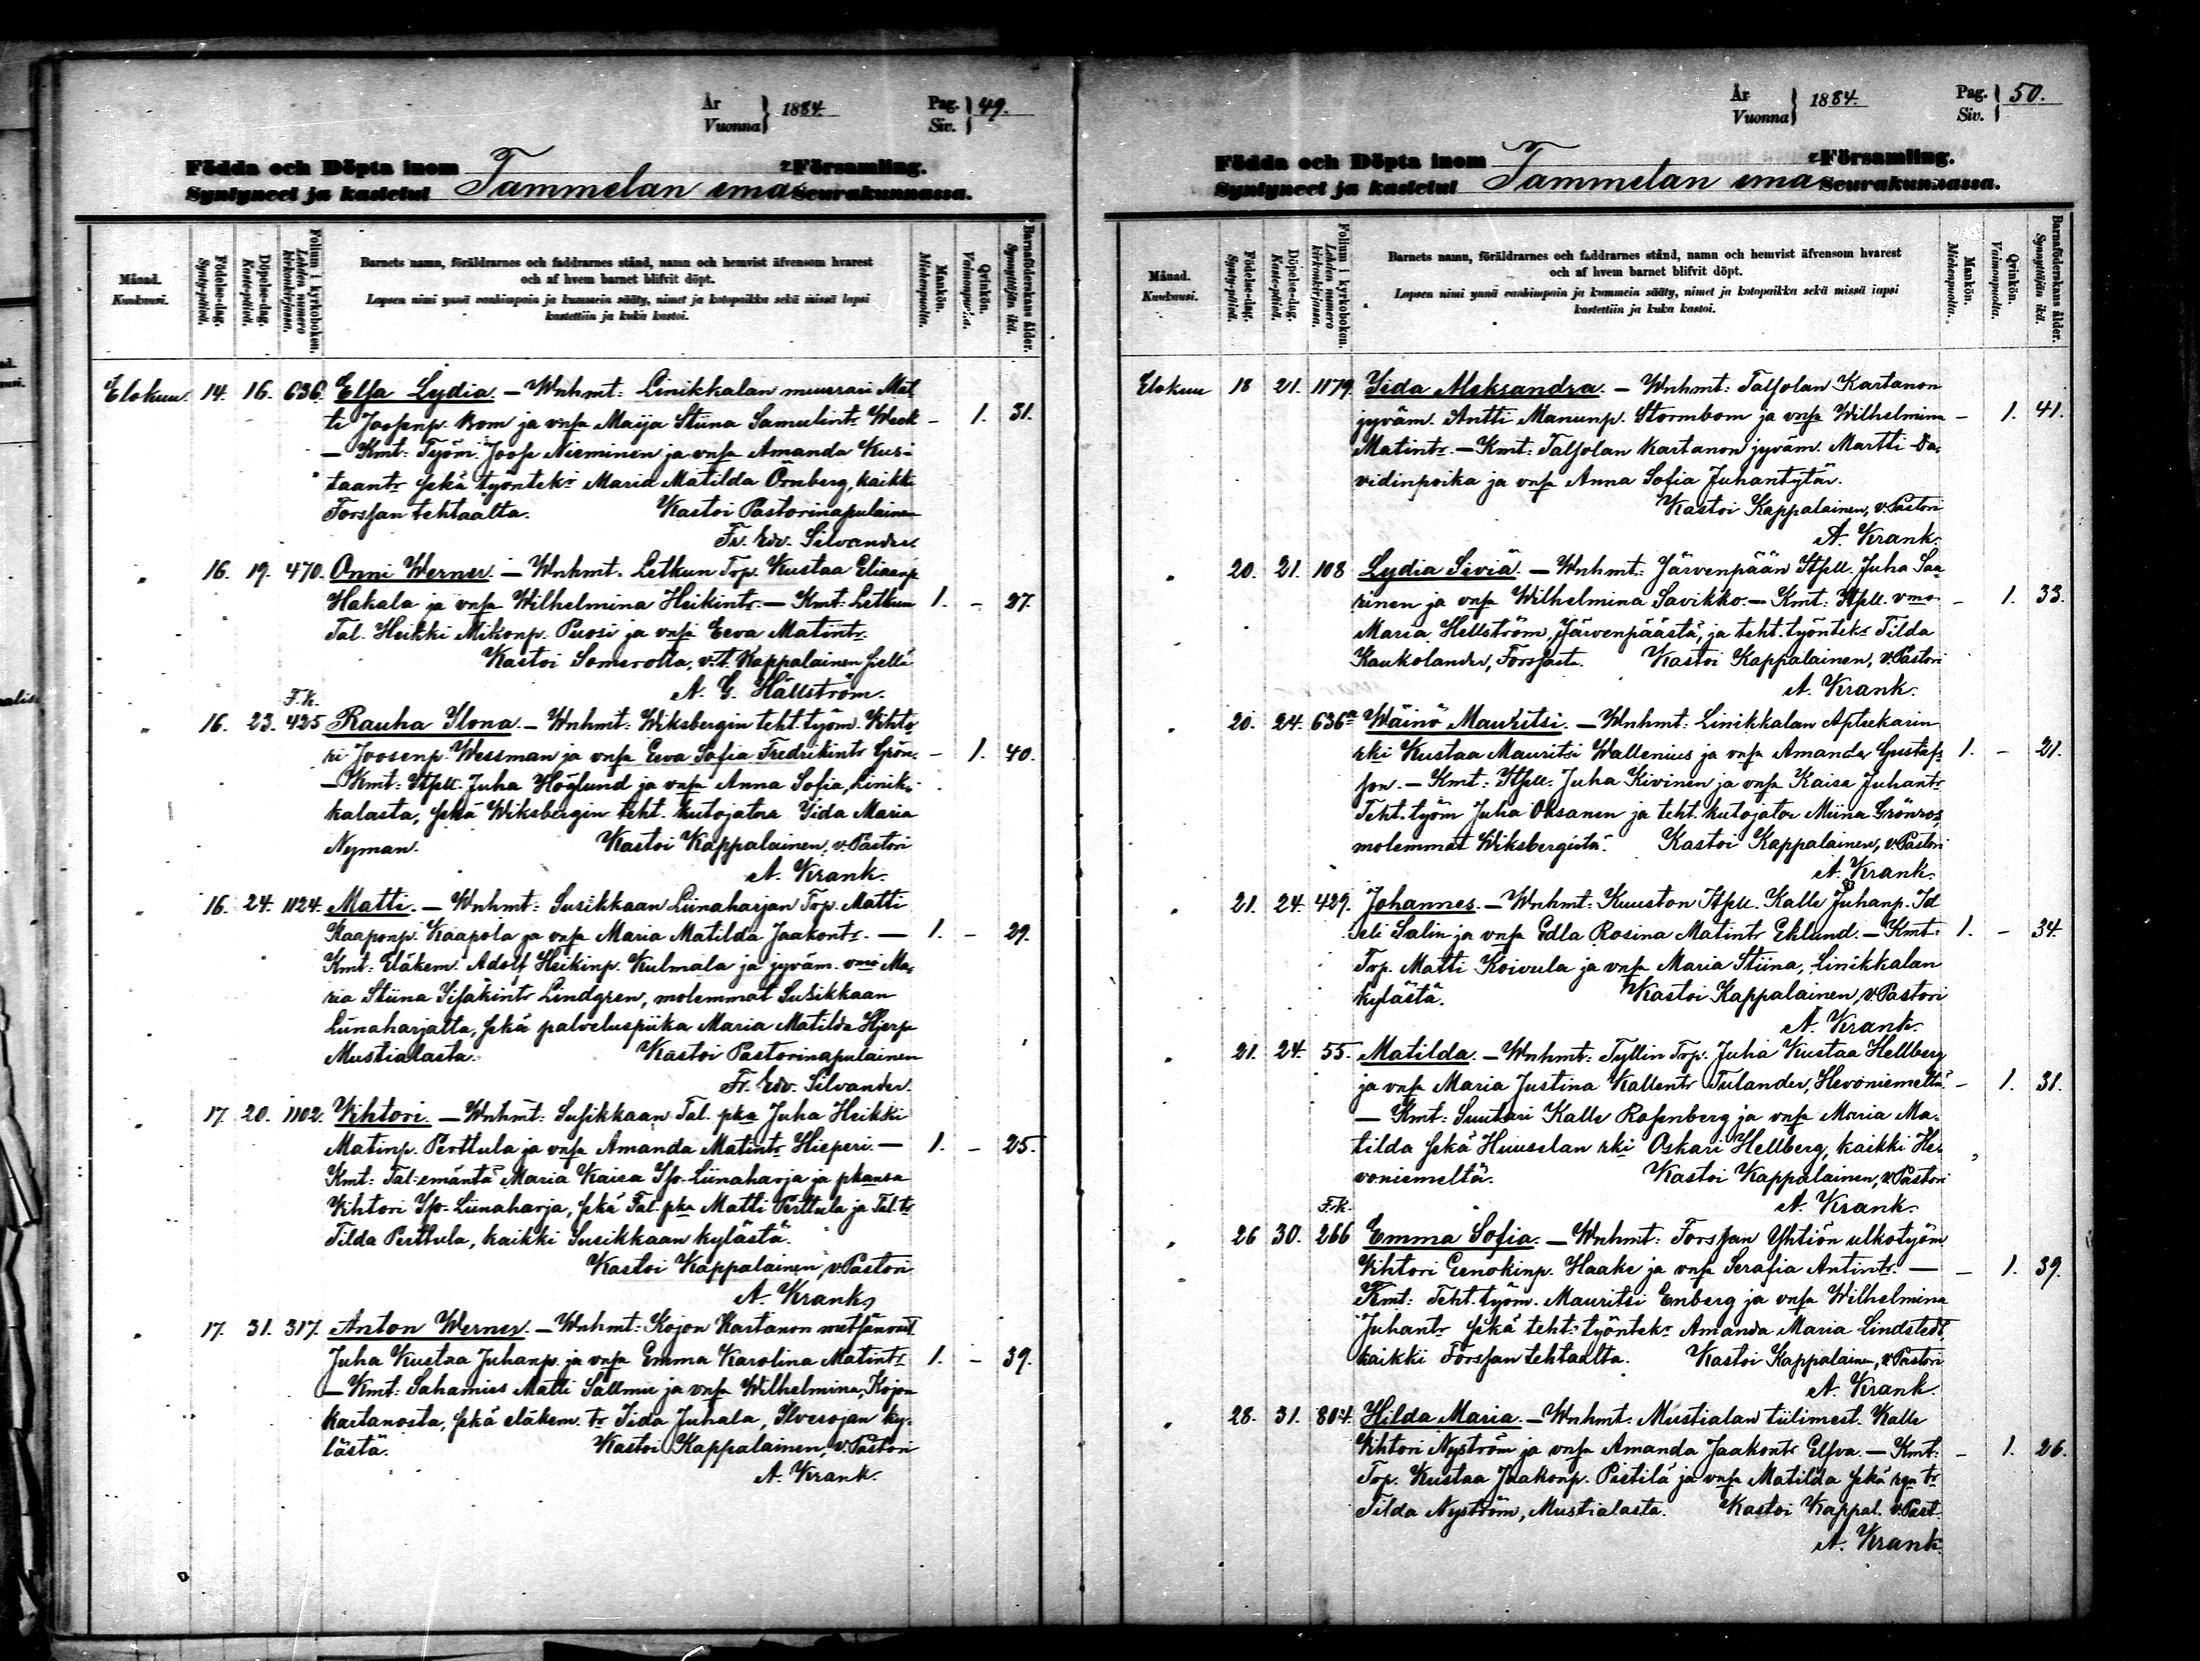 År
Vuonna } 1884.
Pag.
Siv. } 49.
Födda och Döpta inom
Syntyneet ja kastetut Tammelan ema
Församling.
Seurakunnassa.
Månad.
Kuukausi.
Födelse-dag.
Synty-päivä.
Döpelse-dag.
Kaste-päivä.
Folium i kyrkoboken.
Lehden numero kirkonkirjassa.
Barnets namn, föräldrarnes och faddrarnes stånd, namn och hemvist äfvensom hvarest
och af hvem barnet blifvit döpt.
Lapsen nimi ynnä vanhimpain ja kummein sääty, nimet ja kotopaikka sekä missä lapsi
kastettiin ja kuka kastoi.
Mankön.
Miehenpuolta.
Qvinkön.
Vaimonpuolta.
Barnaföderskans ålder.
Synnyttäjän ikä.
Elokuu. 14. 16. 636. Elsa Lydia. — Wnhmt: Linikkalan muurari Mat
ti Joosenp. Bom ja vnsa Maija Stiina Samulintr Weck — 1. 31.
— Kmt: Työm. Joose Nieminen ja vnsa Amanda Kus-
taantr sekä työntek: Maria Matilda Örnberg, kaikki
Forssan tehtaalta. Kastoi Pastorinapulainen
Fr. Edv. Silvander.
" 16. 19. 470. Onni Werner. — Wnhmt. Letkun Trp. Kustaa Eliaanp
Hakala ja vnsa Wilhelmina Heikintr. — Kmt: Letkun 1. - 27.
Tal. Heikki Mikonp. Puosi ja vnsa Eeva Matintr.
Kastoi Somerolla, v.t. Kappalainen siellä
A. G. Hällström.
F.K.
" 16. 23. 425 Rauha Ilona. — Wnhmt: Wiksbergin teht. työm. Vihto
ri Joosenp. Wessman ja vnsa Eeva Sofia Fredrikintr Grön. — 1. 40.
— Kmt: Itsll. Juha Höglund ja vnsa Anna Sofia, Linik-
kalasta, sekä Wiksbergin teht. kutojatar Iida Maria
Nyman. Kastoi Kappalainen, v. Pastori
A. Krank.
" 16. 24. 1124. Matti. — Wnhmt: Susikkaan Liinaharjan Trp. Matti
Kaaponp. Kaapola ja vnsa Maria Matilda Jaakontr. — 1. - 29.
Kmt: Eläkem. Adolf Heikinp. Kulmala ja jyväm. vmo Ma-
ria Stiina Iisakintr Lindgren, molemmat Susikkaan
Liinaharjalta, sekä palveluspiika Maria Matilda Hjerpe
Mustialasta. Kastoi Pastorinapulainen
Fr. Edv. Silvander.
" 17. 20. 1102. Vihtori. — Wnhmt: Susikkaan Tal. pka Juha Heikki
Matinp. Perttula ja vnsa Amanda Matintr Hieperi. — 1. - 25.
Kmt: Tal: emäntä Maria Kaisa Iso-Liinaharja ja pkansa
Vihtori Iso-Liinaharja, sekä Tal. pka Matti Perttula ja Tal. tr
Tilda Perttula, kaikki Susikkaan kylästä.
Kastoi Kappalainen, v. Pastori
A. Krank.
" 17. 31. 317. Anton Werner. — Wnhmt: Kojon Kartanon metsänvart
Juha Kustaa Juhanp. ja vnsa Emma Karolina Matintr 1. - 39.
— Kmt: Sahamies Matti Sallmu ja vnsa Wilhelmina, Kojon
kartanosta, sekä eläkem. tr Iida Juhala, Ilvesojan ky-
lästä. Kastoi Kappalainen, v. Pastori
A. Krank.
År
Vuonna } 1884.
Pag.
Siv. } 50.
Födda och Döpta inom
Syntyneet ja kastetut Tammelan ema
Församling.
Seurakunnassa.
Månad.
Kuukausi.
Födelse-dag.
Synty-päivä.
Döpelse-dag.
Kaste-päivä.
Folium i kyrkoboken.
Lehden numero kirkonkirjassa.
Barnets namn, föräldrarnes och faddrarnes stånd, namn och hemvist äfvensom hvarest
och af hvem barnet blifvit döpt.
Lapsen nimi ynnä vanhimpain ja kummein sääty, nimet ja kotopaikka sekä missä lapsi
kastettiin ja kuka kastoi.
Mankön.
Miehenpuolta.
Qvinkön.
Vaimonpuolta.
Barnaföderskans ålder.
Synnyttäjän ikä.
Elokuu 18 21. 1179. Iida Aleksandra. — Wnhmt: Talsolan Kartanon
jyväm. Antti Manunp. Stormbom ja vnsa Wilhelmina — 1. 41.
Matintr. — Kmt: Talsolan kartanon jyväm. Martti Da-
vidinpoika ja vnsa Anna Sofia Juhantytär.
Kastoi Kappalainen, v. Pastori
A. Krank.
" 20. 21. 108 Lydia Siviä. — Wnhmt: Järvenpään Itsll. Juha Saa
rinen ja vnsa Wilhelmina Savikko. — Kmt: Itsll. vmo — 1. 33.
Maria Hellström, Järvenpäästä, ja teht. työntek: Tilda
Kaukolander, Forssasta. Kastoi Kappalainen, v. Pastori
A. Krank.
" 20. 24. 636a Wäinö Mauritsi. — Wnhmt: Linikkalan Apteekarin
rki Kustaa Mauritsi Wallenius ja vnsa Amanda Gustafs- 1. - 21.
son. — Kmt: Itsll. Juha Kivinen ja vnsa Kaisa Juhantr
Teht. työm Juha Oksanen ja teht. kutojatar Miina Grönroos,
molemmat Wiksbergistä. Kastoi Kappalainen, v. Pastori
A. Krank.
" 21. 24. 429. Johannes. — Wnhmt: Kuuston Itsll. Kalle Juhanp. Id
eli Salin ja vnsa Edla Rosina Matintr Eklund. — Kmt: 1. - 34.
Trp. Matti Koivula ja vnsa Maria Stiina, Linikkalan
kylästä. Kastoi Kappalainen, v. Pastori
A. Krank.
" 21. 24. 55. Matilda. — Wnhmt: Tyllin Trp. Juha Kustaa Hellberg
ja vnsa Maria Justina Kallentr Tulander, Hevoniemeltä. — 1. 31.
— Kmt: Suutari Kalle Rosenberg ja vnsa Maria Ma-
tilda sekä Huuselan rki Oskari Hellberg, kaikki He-
voniemeltä. Kastoi Kappalainen, v. Pastori
A. Krank.
F.K.
" 26 30. 266 Emma Sofia. — Wnhmt: Forssan Yhtiön ulkotyöm
Vihtori Eenokinp. Haake ja vnsa Serafia Antintr. — — 1. 39.
Kmt: Teht. työm. Mauritsi Enberg ja vnsa Wilhelmina
Juhantr sekä teht: työntek: Amanda Maria Lindstedt,
kaikki Forssan tehtaalta. Kastoi Kappalainen, v. Pastori
A. Krank.
" 28. 31. 804. Hilda Maria. — Wnhmt. Mustialan tiilimest. Kalle
Vihtori Nyström ja vnsa Amanda Jaakontr Elfva. — Kmt: — 1. 26.
Trp. Kustaa Jaakonp. Pietilä ja vnsa Matilda sekä rga tr
Tilda Nyström, Mustialasta. Kastoi Kappal. v. Past.
A. Krank.